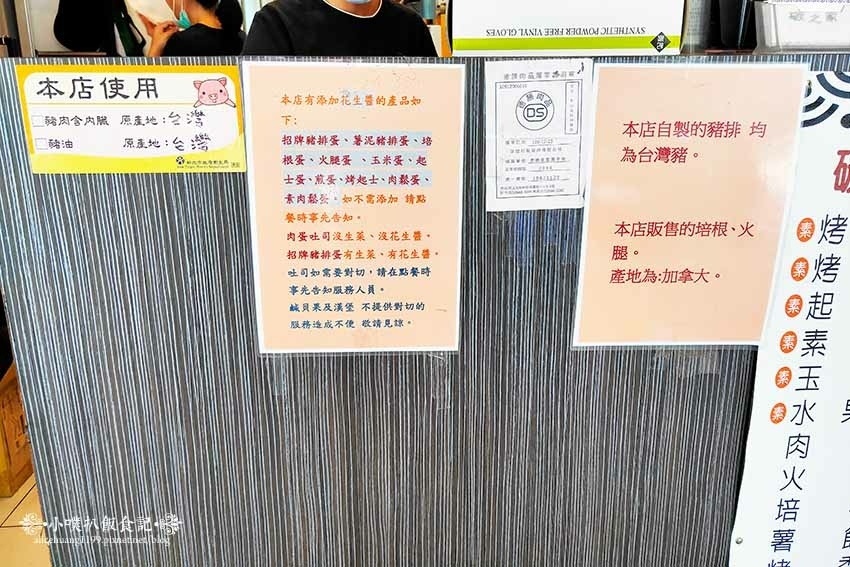 SYNTHETIC POWDER FREE VINYL GLOVES
本店使用
豬肉含內臟 原產地：台灣
豬油 原產地：台灣
本店有添加花生醬的產品如
下：
招牌豬排蛋、薯泥豬排蛋、培
根蛋、火腿蛋 、玉米蛋、起
士蛋、煎蛋、烤起士、肉鬆蛋、
素肉鬆蛋。如不需添加 請點
餐時事先告知。
肉蛋吐司沒生菜、沒花生醬。
招牌豬排蛋有生菜、有花生醬。
吐司如需要對切，請在點餐時
事先告知服務人員。
鹹貝果及漢堡 不提供對切的
服務造成不便 敬請見諒。
DS
本店自製的豬排 均
為台灣豬。
本店販售的培根、火
腿。
產地為:加拿大。
素 烤
素 烤
素 起
素 素
素 玉
素 水
肉
火
培
薯
烤
小噗扒飯食記
alicehuang1199.pixnet.net/blog